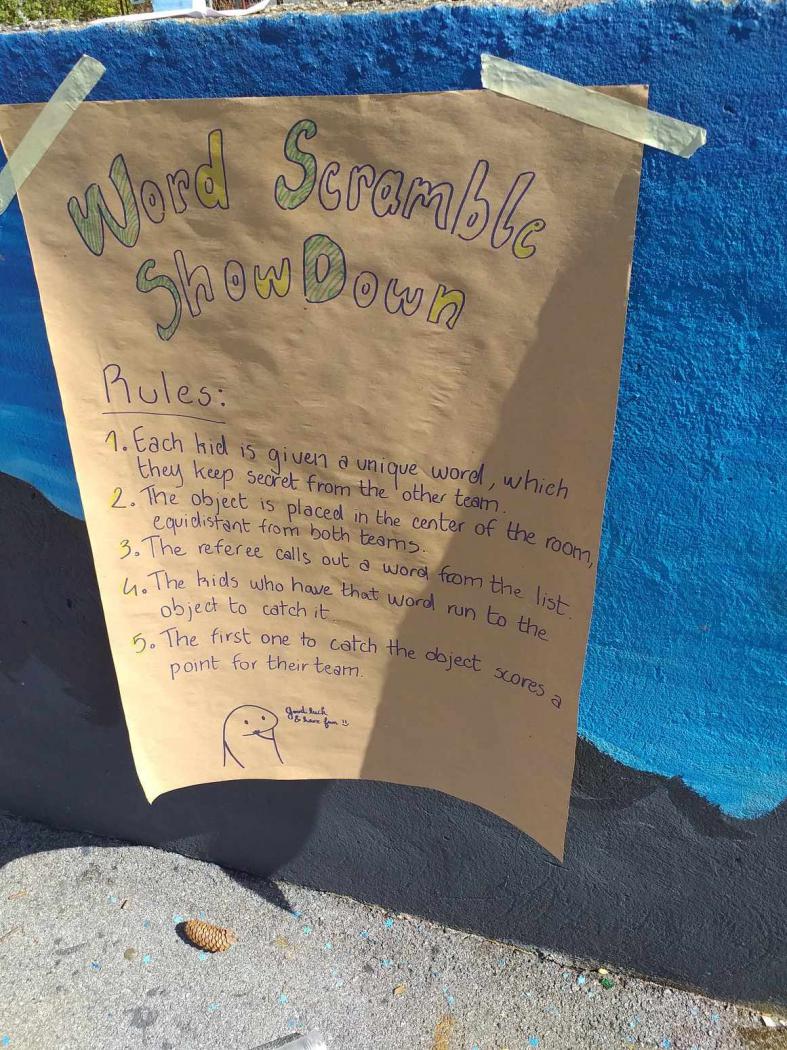 Word Scramble
ShowDown
Rules:
1. Each kid is given a unique word, which
they keep secret from the other team.
2. The object is placed in the center of the room,
equidistant from both teams.
3. The referee calls out a word from the list.
4. The kids who have that word run to the
object to catch it.
5. The first one to catch the object scores a
point for their team.
Good luck
& have fun :)